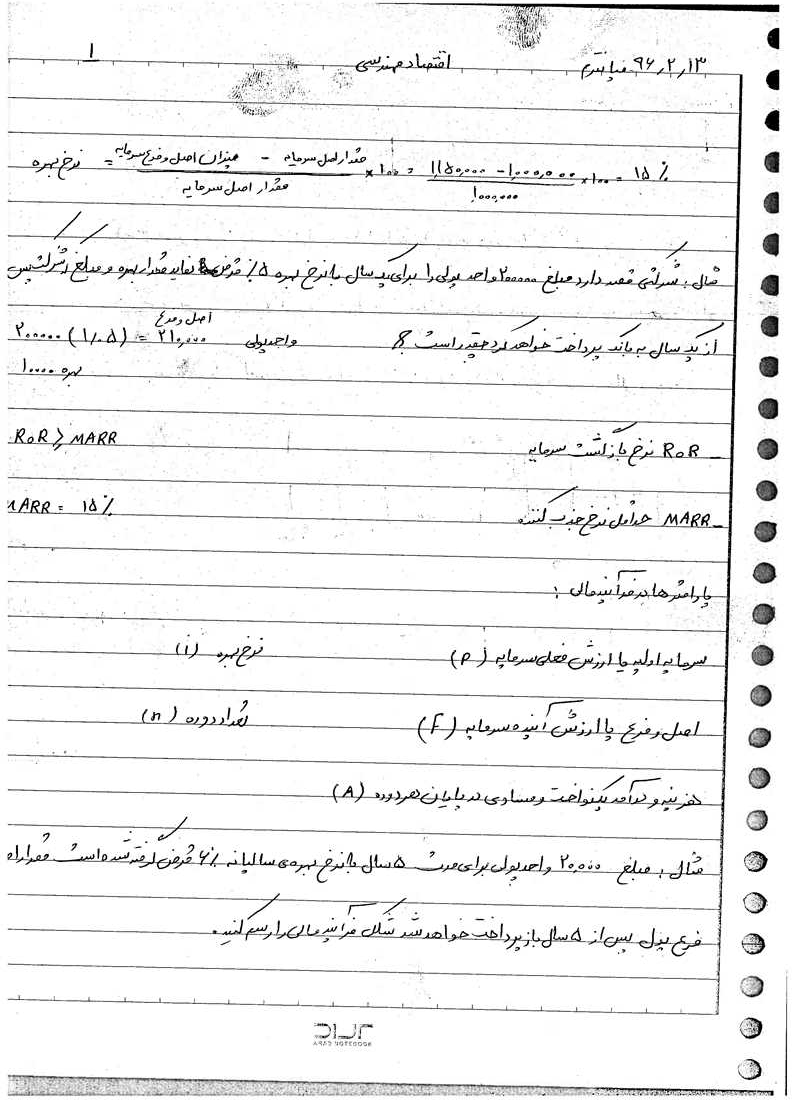 ۹۶/۲/۱۳ اقتصاد مهندسی ۱
نرخ بهره = میزان اصل و فرع سرمایه - مقدار اصل سرمایه / مقدار اصل سرمایه × ۱۰۰ = ۱,۱۵۰,۰۰۰ - ۱,۰۰۰,۰۰۰ / ۱,۰۰۰,۰۰۰ × ۱۰۰ = ۱۵ %
مثال : شرکتی قصد دارد مبلغ ۲۰۰۰۰۰ واحد پولی را برای یک سال با نرخ بهره ۵٪ قرض نماید مقدار بهره و مبلغی شرکت پس
از یک سال به بانک پرداخت خواهد کرد چقدر است ؟ واحد پولی اصل و فرع ۲۱۰,۰۰۰ = (۱/۰۵) ۲۰۰۰۰۰
بهره ۱۰۰۰۰
- ROR نرخ بازگشت سرمایه ROR ≥ MARR
- MARR حداقل نرخ جذب کننده MARR = ۱۵ %
پارامترها در فرآیند مالی :
سرمایه اولیه یا ارزش فعلی سرمایه (P) نرخ بهره (i)
اصل و فرع یا ارزش آینده سرمایه (F) تعداد دوره (n)
هزینه و درآمد یکنواخت و مساوی در پایان هر دوره (A)
مثال : مبلغ ۲۰,۰۰۰ واحد پولی برای مدت ۵ سال با نرخ بهره ی سالیانه ۶٪ قرض گرفته شده است مقدار
فرع پول پس از ۵ سال باز پرداخت خواهد شد شکل فرآیند مالی را رسم کنید.
ARAD NOTEBOOK